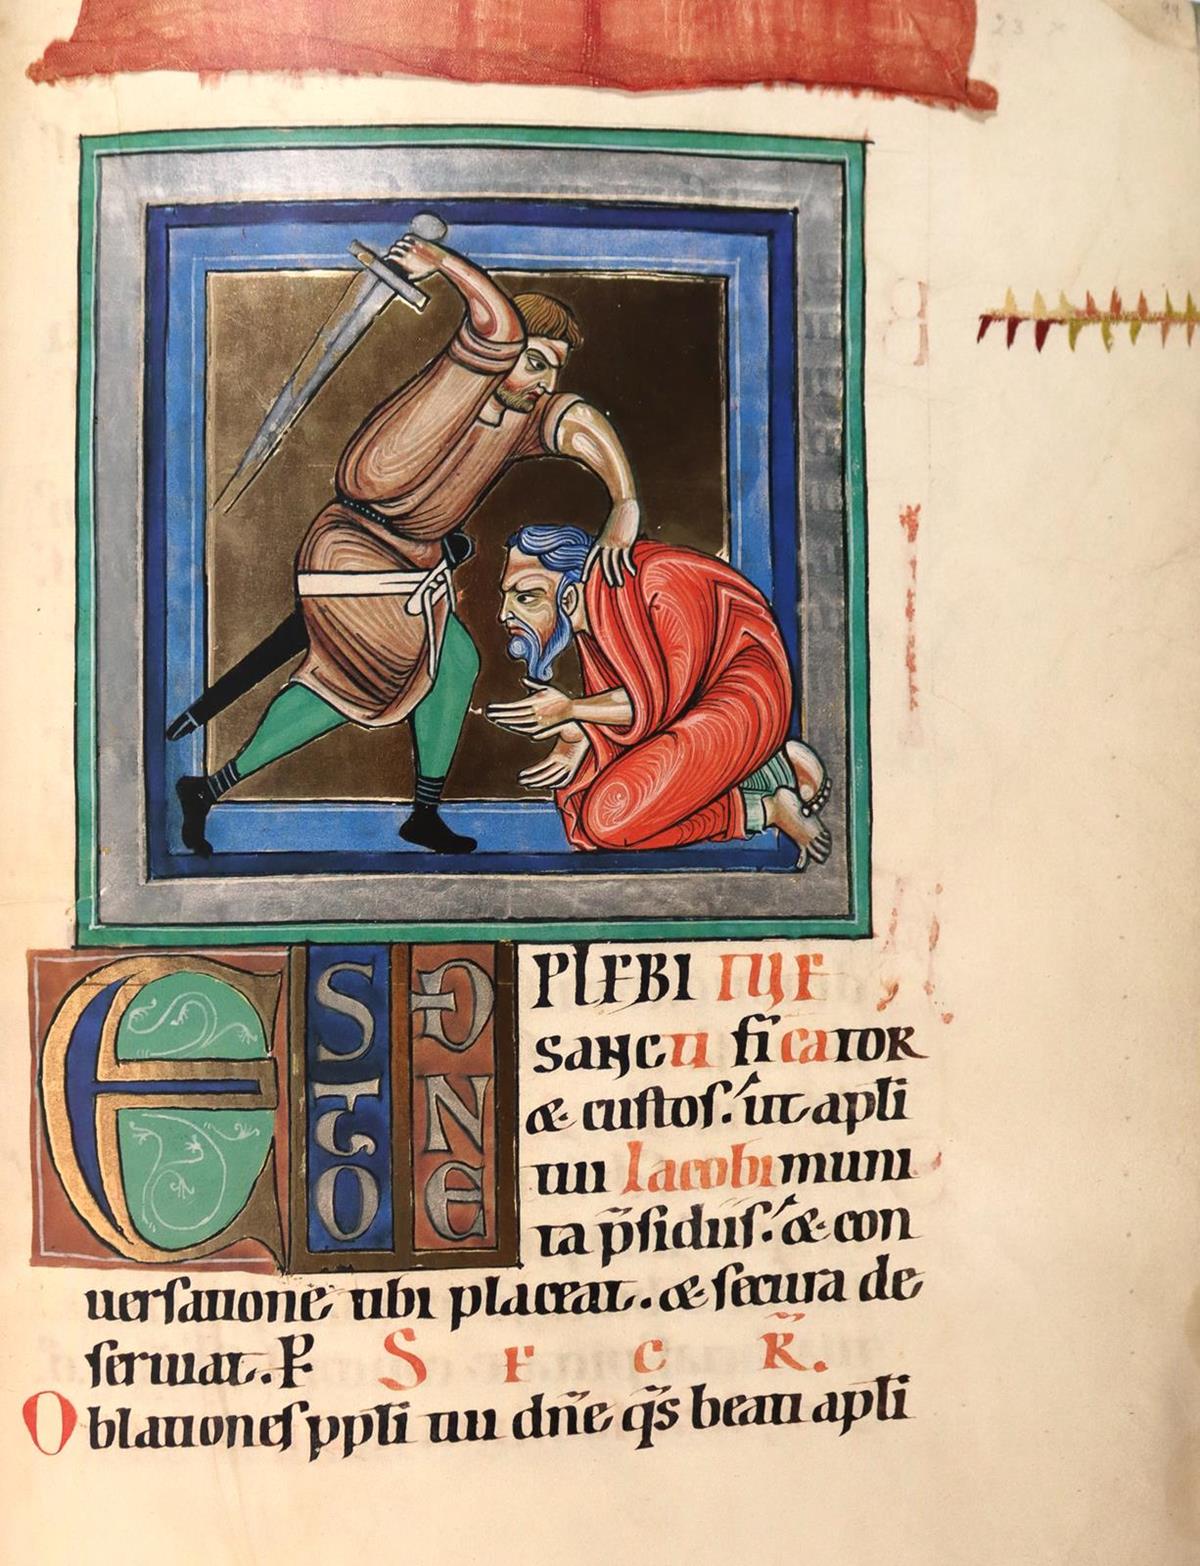 ESTO DNE PLEBI TUE
SANCTIFICATOR
& custos. ut apłi
tui Iacobi muni
ta p̃sidiis. & con
uersatione tibi placeat. & secura de
seruiat. P. S F C R̃.
Oblationes ppłi tui dñe q̃s beati apłi